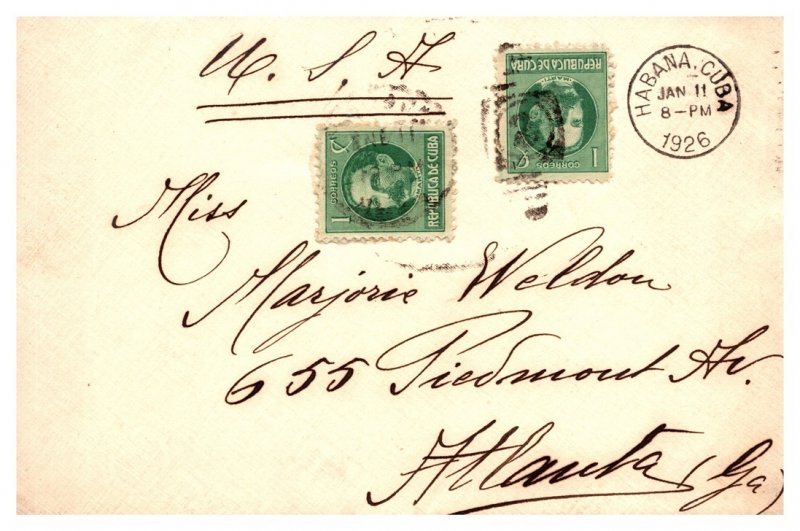 U. S. A
REPUBLICA DE CUBA
MARTI
CORREOS
1 ¢
HABANA, CUBA
JAN 11
8-PM
1926
CORREOS
1 ¢
REPUBLICA DE CUBA
Miss
Marjorie Weldon
655 Piedmont Av.
Atlanta, (Ga)